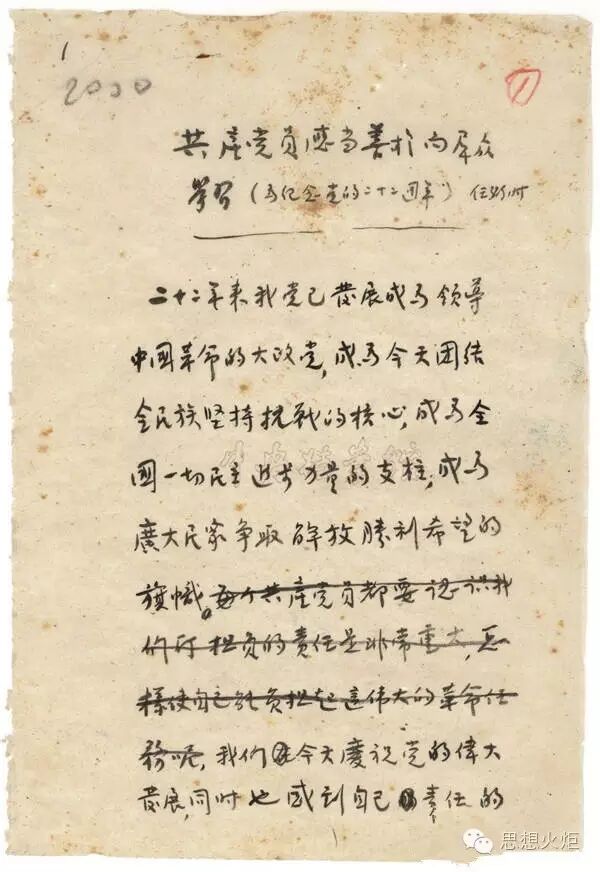 1
2030
1
共產党员應当善於向群众
學習(为纪念党的二十二週年)任弼时
二十二年来我党已發展成为领导
中國革命的大政党,成为今天团结
全民族坚持抗戰的核心,成为全
國一切民主进步力量的支柱,成为
廣大民众争取解放勝利希望的
旗幟。每个共產党员都要認识我
们所担负的责任是非常重大,怎
樣使自己能负担起這伟大的革命任
務呢,我们在今天慶祝党的偉大
發展,同时也感到自己责任的
思想火炬